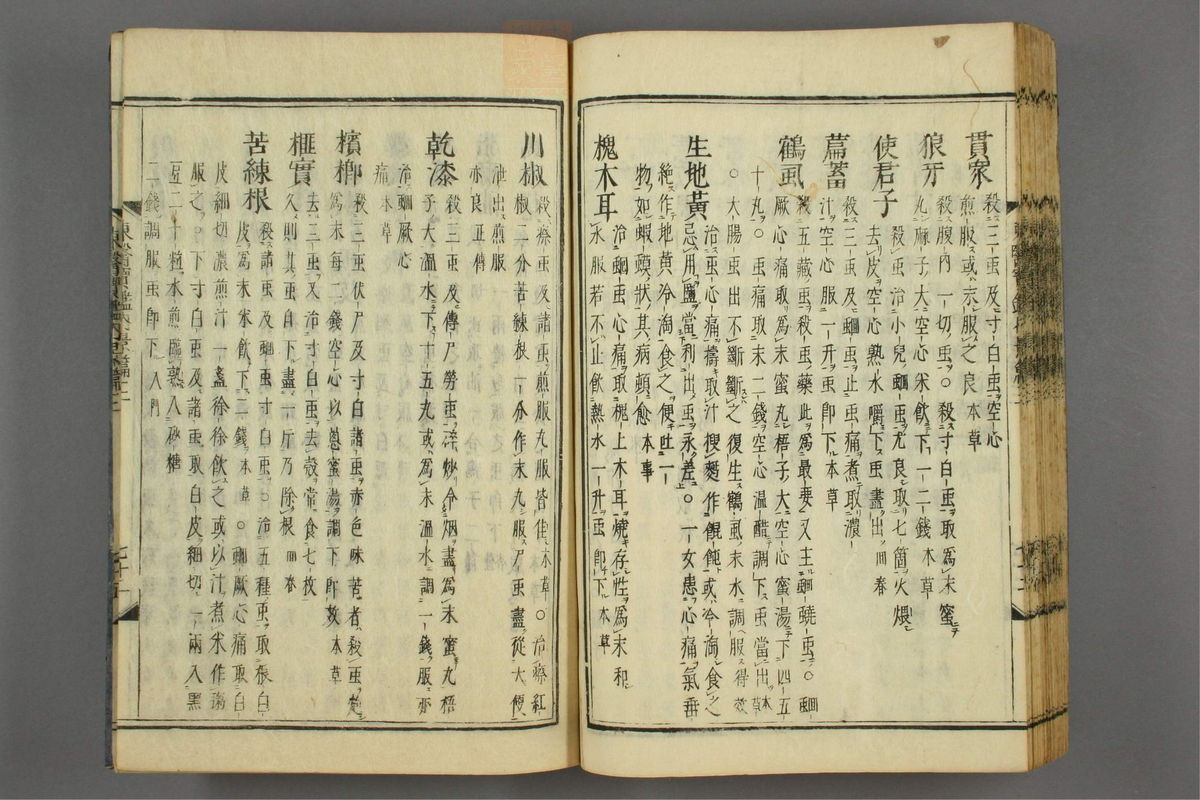 貫衆
殺三虫及寸白虫空心
煎服或末服之良本草
狼牙
殺腹內一切虫○殺寸白虫取爲末蜜
丸麻子大空心米飮下一二錢本草
使君子
殺虫治小兒蛔虫尤良取七箇火煨
去皮空心熱水嚼下虫盡出回春
萹蓄
殺三虫及蛔虫止虫痛煮取濃
汁空心服一升虫卽下本草
鶴虱
殺五藏虫殺虫藥此爲最要又主蛔蟯虫○蛔
厥心痛取爲末蜜丸梧子大空心蜜湯下四五
十丸○虫痛取末二錢空心溫醋調下虫當出本草
○大腸虫出不斷斷之復生鶴虱末水調服得效
生地黃
治虫心痛擣取汁溲麪作餛飩或冷淘食之
忌用鹽當利出虫永差○一女患心痛氣垂
絶作地黃冷淘食之便吐一
物如蝦蟆狀其病頓愈本事
槐木耳
治蛔虫心痛取槐上木耳燒存性爲末和
水服若不止飮熱水一升虫卽下本草
川椒
殺瘵虫及諸虫煎服丸服皆佳本草○治瘵紅
椒二分苦練根一分作末丸服尸蟲盡從大便
泄出煎服
亦良正傳
乾漆
殺三虫及傳尸勞虫㳃炒令烟盡爲末蜜丸梧
子大溫水下十五丸或爲末溫水調一錢服亦
治蛔厥心
痛本草
檳榔
殺三虫伏尸及寸白諸虫赤色味苦者殺虫
爲末每二錢空心以葱蜜湯調下卽效本草
榧實
去三虫又治寸白虫去殼常食七枚
久則其虫自下盡一斤乃除根回春
苦練根
殺諸虫及蛔虫寸白虫○治五種虫取根白
皮爲末米飮下二錢本草○蛔厥心痛取白
皮細切濃煎汁一盞徐徐飮之或以汁煮米作粥
服之○下寸白虫及諸虫取白皮細切一兩入黑
豆二十粒水煎臨熟入砂糖
二錢調服虫卽下入門